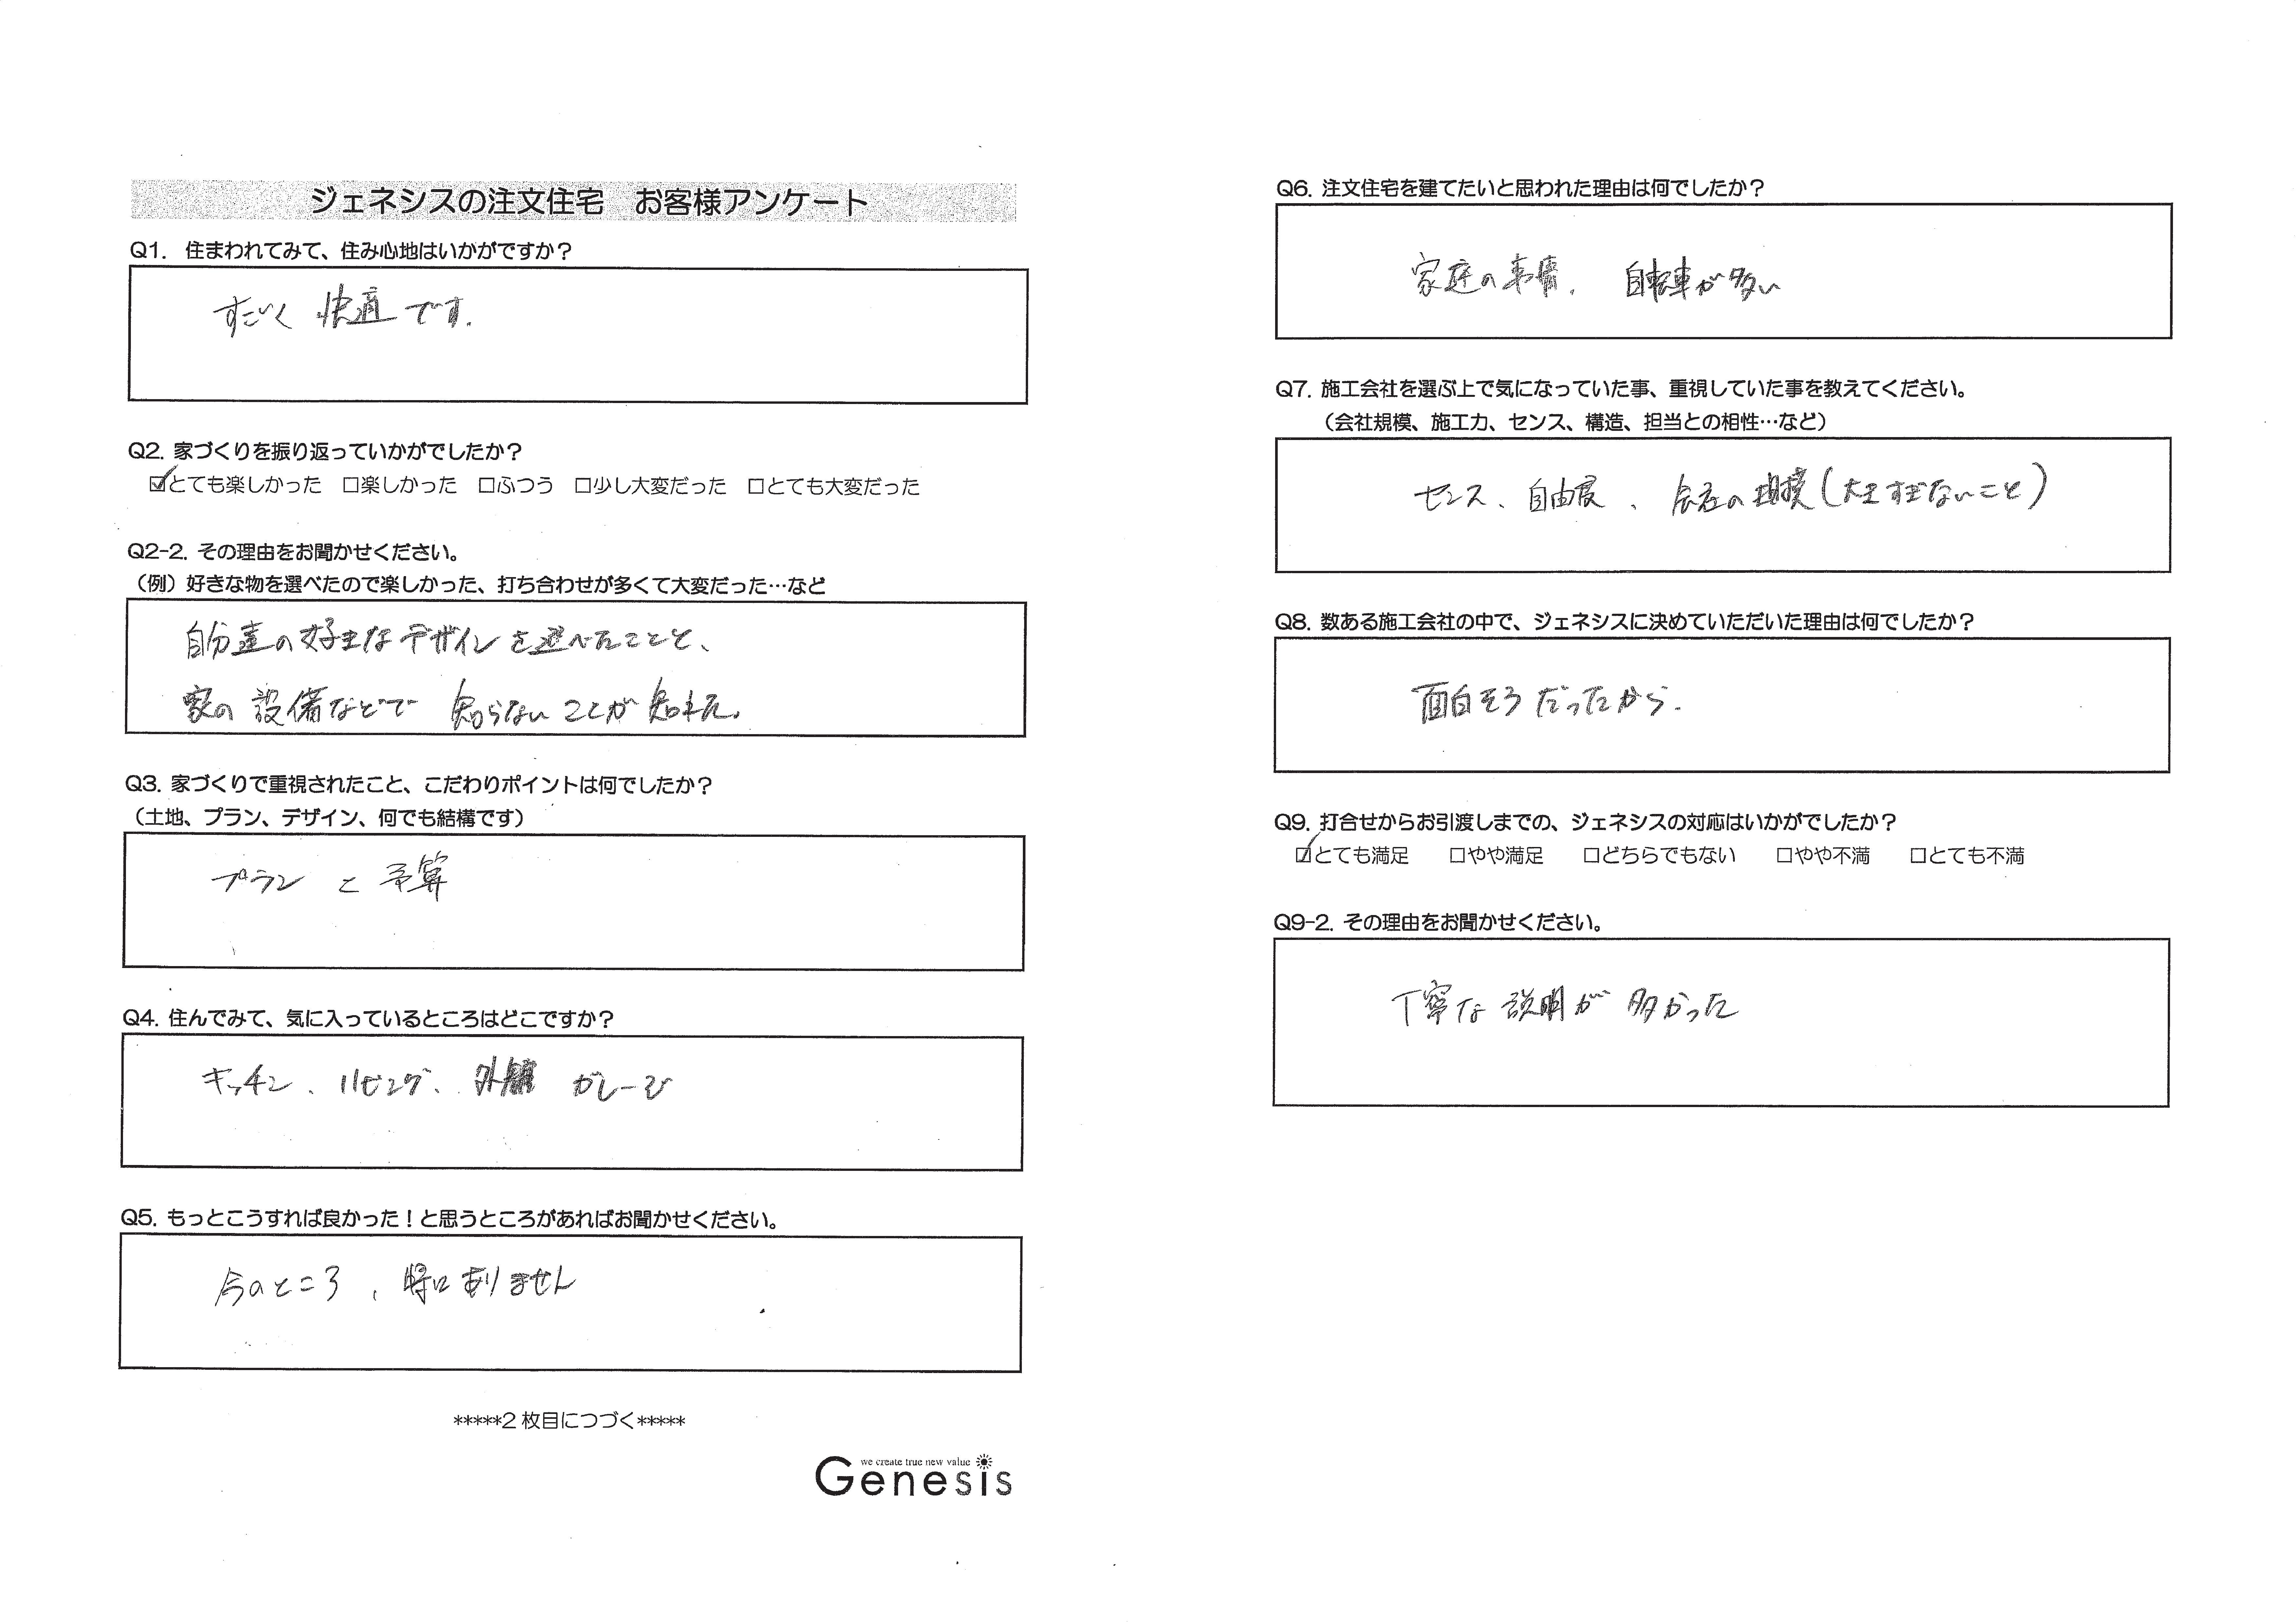 ジェネシスの注文住宅　お客様アンケート
Q1. 住まわれてみて、住み心地はいかがですか？
すごく 快適です.
Q2. 家づくりを振り返っていかがでしたか？
☑とても楽しかった □楽しかった □ふつう □少し大変だった □とても大変だった
Q2-2. その理由をお聞かせください。
（例）好きな物を選べたので楽しかった、打ち合わせが多くて大変だった…など
自分達の好きなデザインを選べたことと、
家の設備などで 知らないことが知れた。
Q3. 家づくりで重視されたこと、こだわりポイントは何でしたか？
（土地、プラン、デザイン、何でも結構です）
プラン と 予算
Q4. 住んでみて、気に入っているところはどこですか？
キッチン、リビング、ガレージ
Q5. もっとこうすれば良かった！と思うところがあればお聞かせください。
今のところ、特にありません
*****2枚目につづく*****
we create true new value
Genesis
Q6. 注文住宅を建てたいと思われた理由は何でしたか？
家庭の事情. 自転車が多い
Q7. 施工会社を選ぶ上で気になっていた事、重視していた事を教えてください。
（会社規模、施工力、センス、構造、担当との相性…など）
センス、自由度、会社の規模(大きすぎないこと)
Q8. 数ある施工会社の中で、ジェネシスに決めていただいた理由は何でしたか？
面白そうだったから.
Q9. 打合せからお引渡しまでの、ジェネシスの対応はいかがでしたか？
☑とても満足 □やや満足 □どちらでもない □やや不満 □とても不満
Q9-2. その理由をお聞かせください。
丁寧な説明が多かった